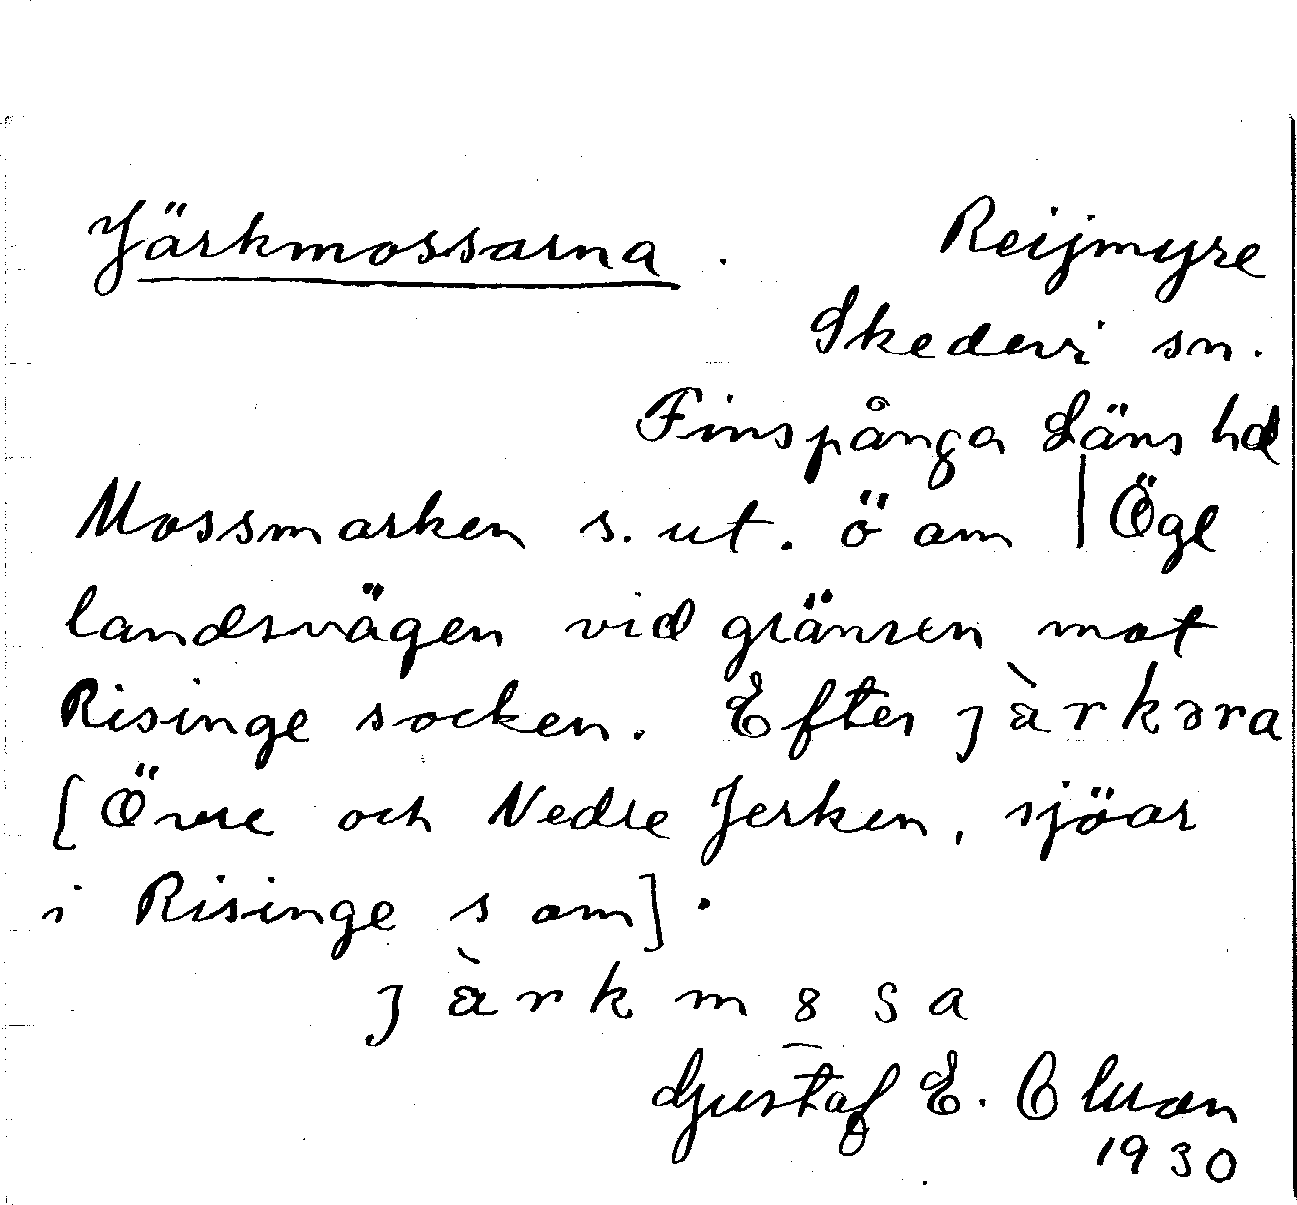 Järkmossarna. Reijmyre
Skedevi sn.
Finspånga Läns hd
Mossmarken s. ut. ö om | Ögl
landsvägen vid gränsen mot
Risinge socken. Efter jàrkəra
[Övre och Nedre Jerken, sjöar
i Risinge s om].